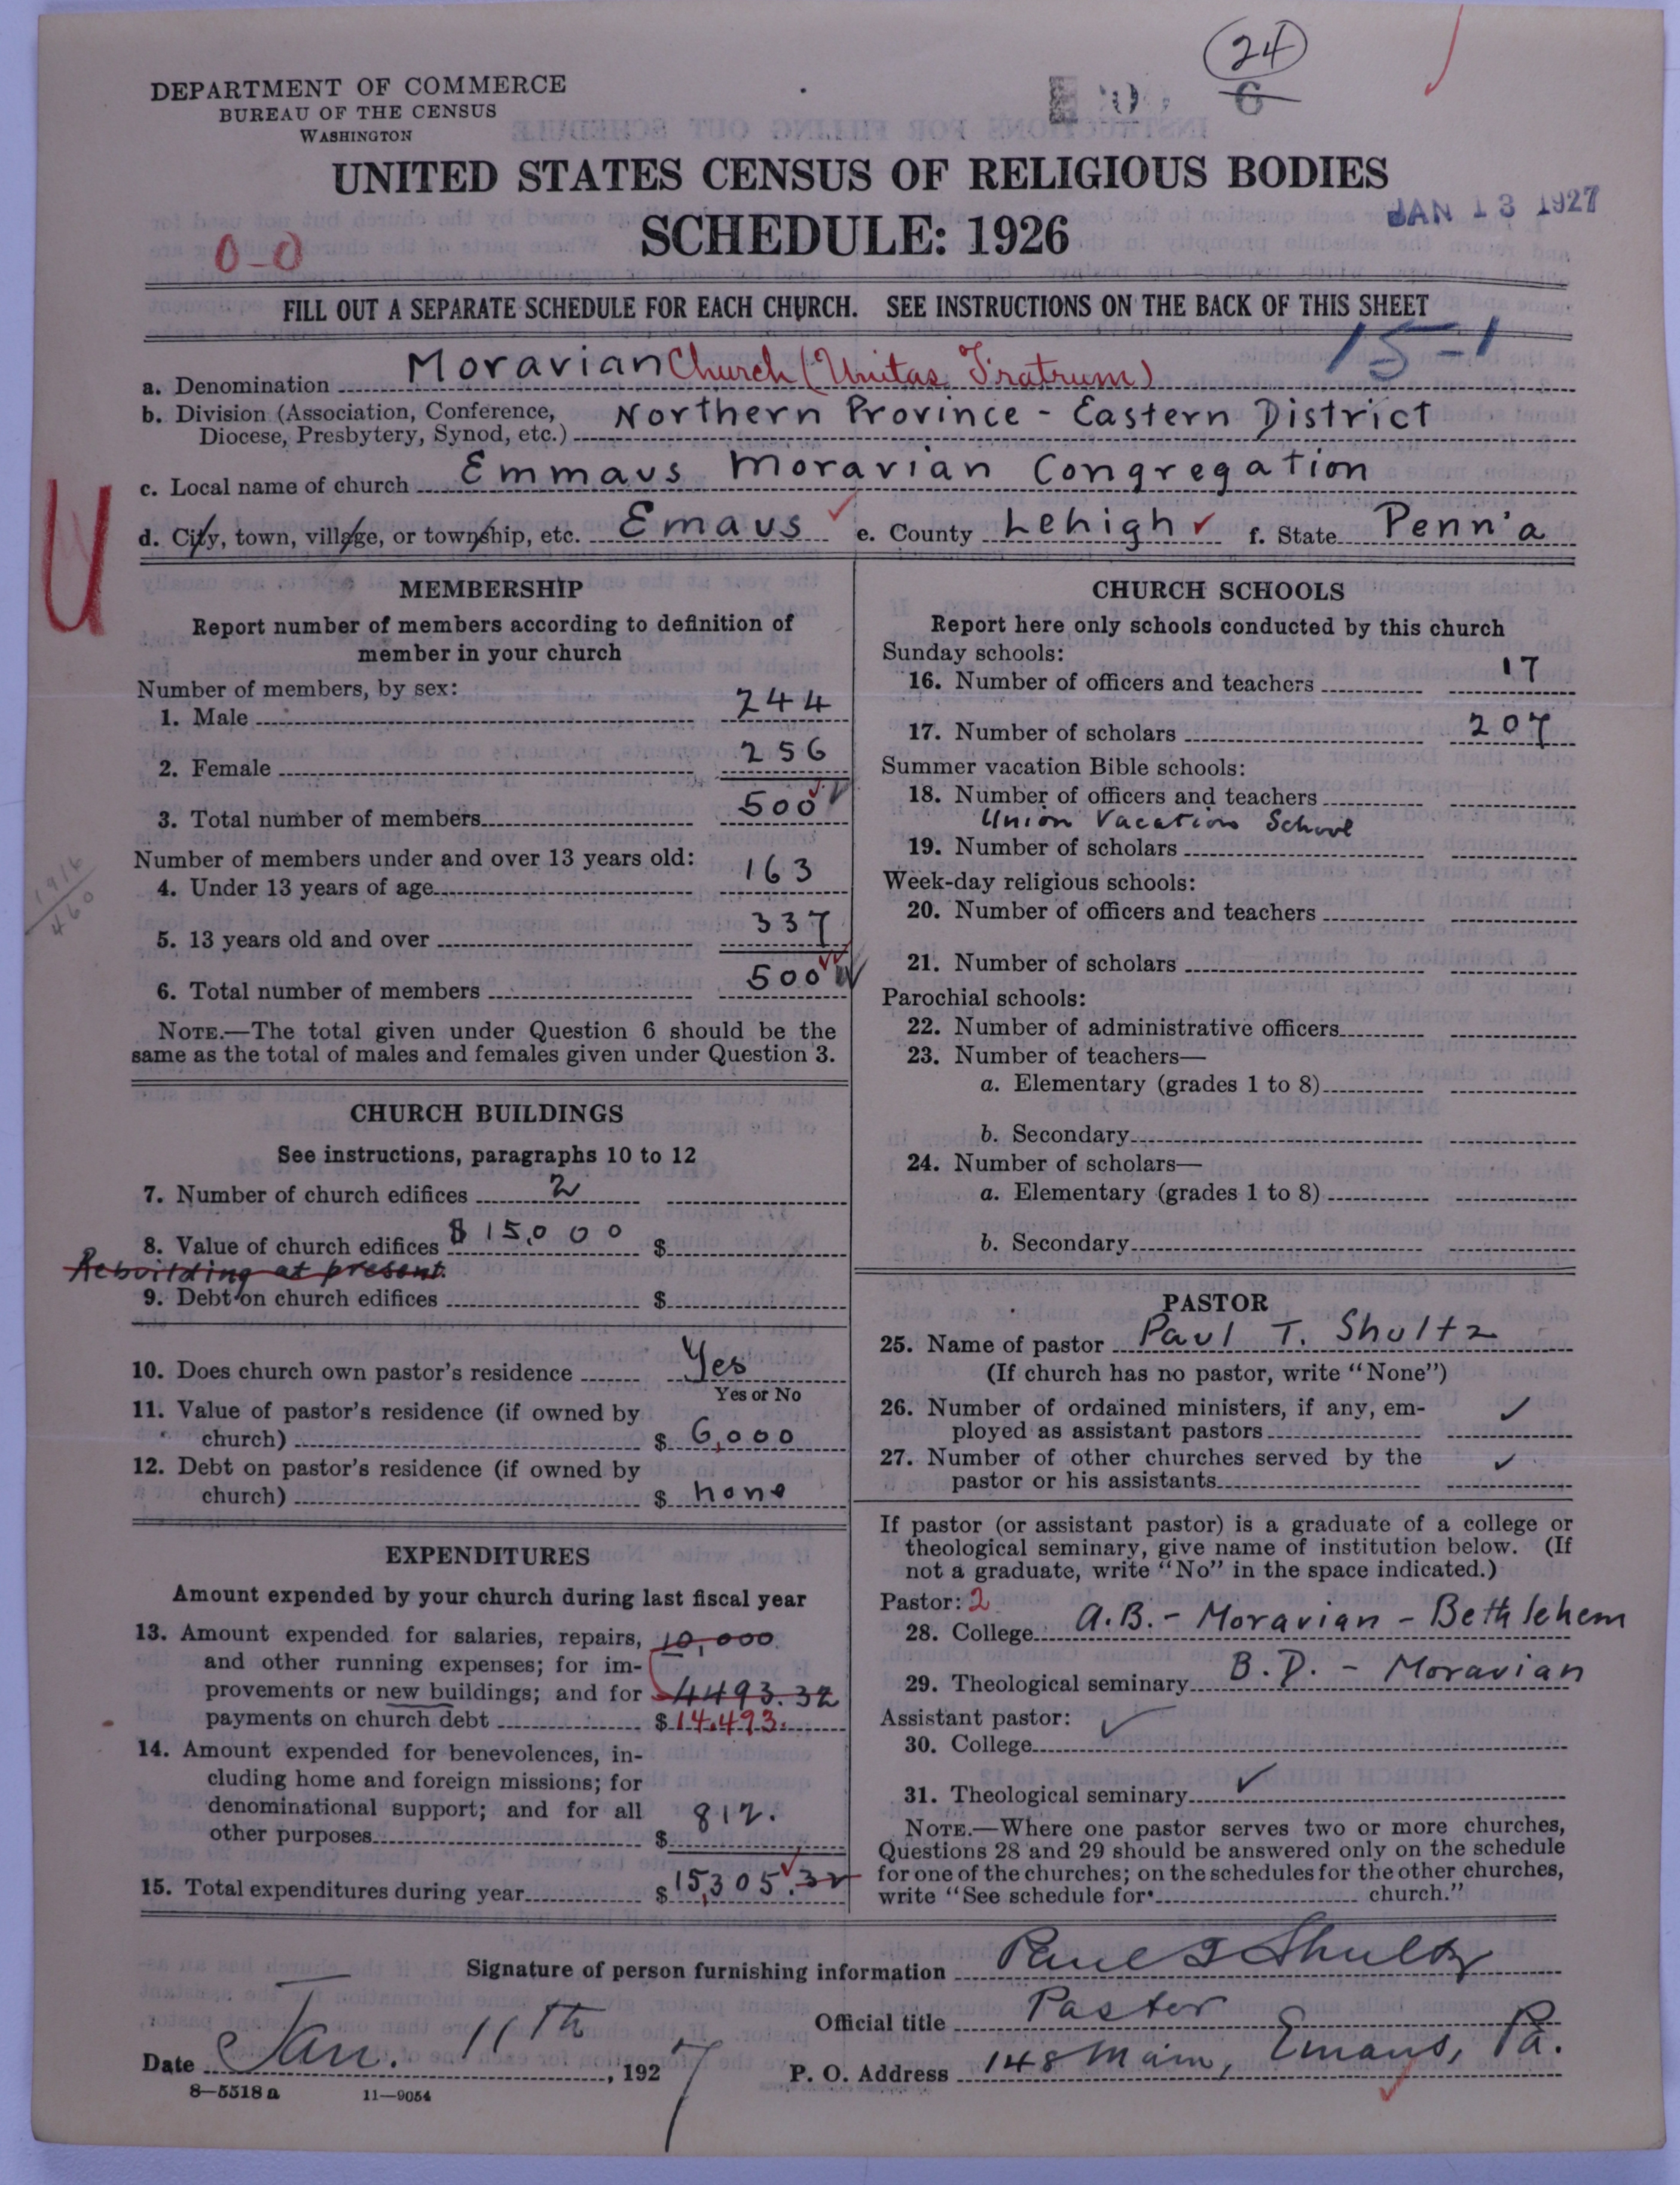 24
6
DEPARTMENT OF COMMERCE
BUREAU OF THE CENSUS
WASHINGTON
UNITED STATES CENSUS OF RELIGIOUS BODIES
JAN 13 1927
SCHEDULE: 1926
0-0
FILL OUT A SEPARATE SCHEDULE FOR EACH CHURCH. SEE INSTRUCTIONS ON THE BACK OF THIS SHEET
15-1
a. Denomination Moravian Church (Unitas Fratrum)
b. Division (Association, Conference, Diocese, Presbytery, Synod, etc.) Northern Province - Eastern District
c. Local name of church Emmaus Moravian Congregation
d. City, town, village, or township, etc. Emaus e. County Lehigh f. State Penn'a
U
MEMBERSHIP
Report number of members according to definition of
member in your church
Number of members, by sex:
1. Male 244
2. Female 256
3. Total number of members 500
Number of members under and over 13 years old:
1916
460
4. Under 13 years of age 163
5. 13 years old and over 337
6. Total number of members 500
NOTE.—The total given under Question 6 should be the
same as the total of males and females given under Question 3.
CHURCH BUILDINGS
See instructions, paragraphs 10 to 12
7. Number of church edifices 2
8. Value of church edifices $15,000 $
Rebuilding at present
9. Debt on church edifices $
10. Does church own pastor's residence Yes
Yes or No
11. Value of pastor's residence (if owned by
church) $ 6,000
12. Debt on pastor's residence (if owned by
church) $ none
EXPENDITURES
Amount expended by your church during last fiscal year
13. Amount expended for salaries, repairs, 10,000
and other running expenses; for im-
provements or new buildings; and for 4493.32
payments on church debt $ 14,493.
14. Amount expended for benevolences, in-
cluding home and foreign missions; for
denominational support; and for all 812.
other purposes $
15. Total expenditures during year $ 15,305.32
CHURCH SCHOOLS
Report here only schools conducted by this church
Sunday schools:
16. Number of officers and teachers 17
17. Number of scholars 207
Summer vacation Bible schools:
18. Number of officers and teachers
Union Vacation School
19. Number of scholars
Week-day religious schools:
20. Number of officers and teachers
21. Number of scholars
Parochial schools:
22. Number of administrative officers
23. Number of teachers—
a. Elementary (grades 1 to 8)
b. Secondary
24. Number of scholars—
a. Elementary (grades 1 to 8)
b. Secondary
PASTOR
25. Name of pastor Paul T. Shultz
(If church has no pastor, write "None")
26. Number of ordained ministers, if any, em-
ployed as assistant pastors ✓
27. Number of other churches served by the
pastor or his assistants ✓
If pastor (or assistant pastor) is a graduate of a college or
theological seminary, give name of institution below. (If
not a graduate, write "No" in the space indicated.)
Pastor: 2
28. College A.B. - Moravian - Bethlehem
29. Theological seminary B.D. - Moravian
Assistant pastor: ✓
30. College
31. Theological seminary ✓
NOTE.—Where one pastor serves two or more churches,
Questions 28 and 29 should be answered only on the schedule
for one of the churches; on the schedules for the other churches,
write "See schedule for church."
Signature of person furnishing information Paul T Shultz
Official title Pastor
Date Jan. 11th, 1927 P. O. Address 148 Main, Emaus, Pa.
8—5518 a 11—9054